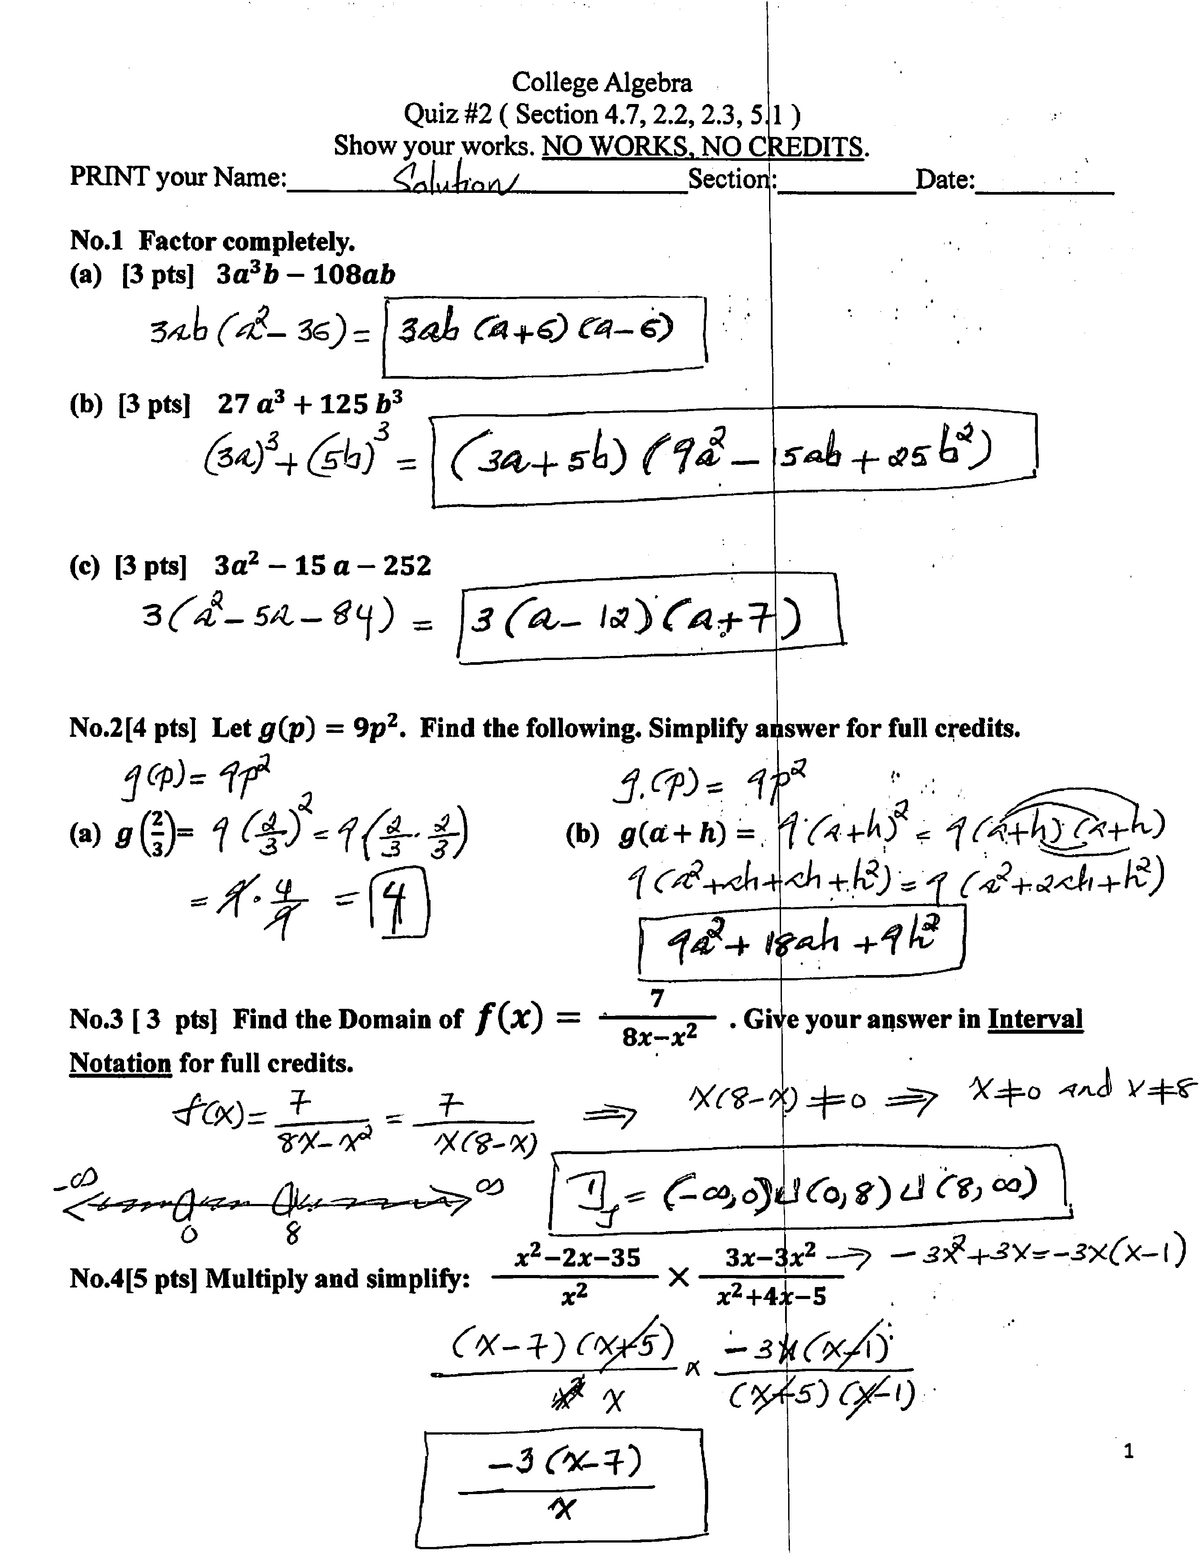 College Algebra
Quiz #2 ( Section 4.7, 2.2, 2.3, 5.1 )
Show your works. NO WORKS, NO CREDITS.
PRINT your Name: Solution Section: Date:
No.1 Factor completely.
(a) [3 pts] 3a³b − 108ab
3ab(a²−36) = 3ab (a+6)(a−6)
(b) [3 pts] 27 a³ + 125 b³
(3a)³+(5b)³ = (3a+5b) (9a²−15ab+25b²)
(c) [3 pts] 3a² − 15 a − 252
3(a²−5a−84) = 3(a−12)(a+7)
No.2[4 pts] Let g(p) = 9p². Find the following. Simplify answer for full credits.
g(p)= 9p² g(p) = 9p²
(a) g(2/3)= 9(2/3)² = 9(2/3 · 2/3) (b) g(a + h) = 9(a+h)² = 9(a+h)(a+h)
= 9 · 4/9 = 4 9(a²+ah+ah+h²) = 9(a²+2ah+h²)
9a²+18ah+9h²
No.3 [ 3 pts] Find the Domain of f(x) = 7/(8x−x²) . Give your answer in Interval
Notation for full credits.
f(x)= 7/(8x−x²) = 7/(x(8−x)) ⇒ x(8−x) ≠ 0 ⇒ x≠0 and x≠8
−∞ 0 8 ∞ D_f = (−∞,0)∪(0,8)∪(8,∞)
No.4[5 pts] Multiply and simplify: (x²−2x−35)/x² × (3x−3x²)/(x²+4x−5) → −3x²+3x=−3x(x−1)
(x−7)(x+5)/x² x × −3x(x−1)/((x+5)(x−1))
−3(x−7)/x
1